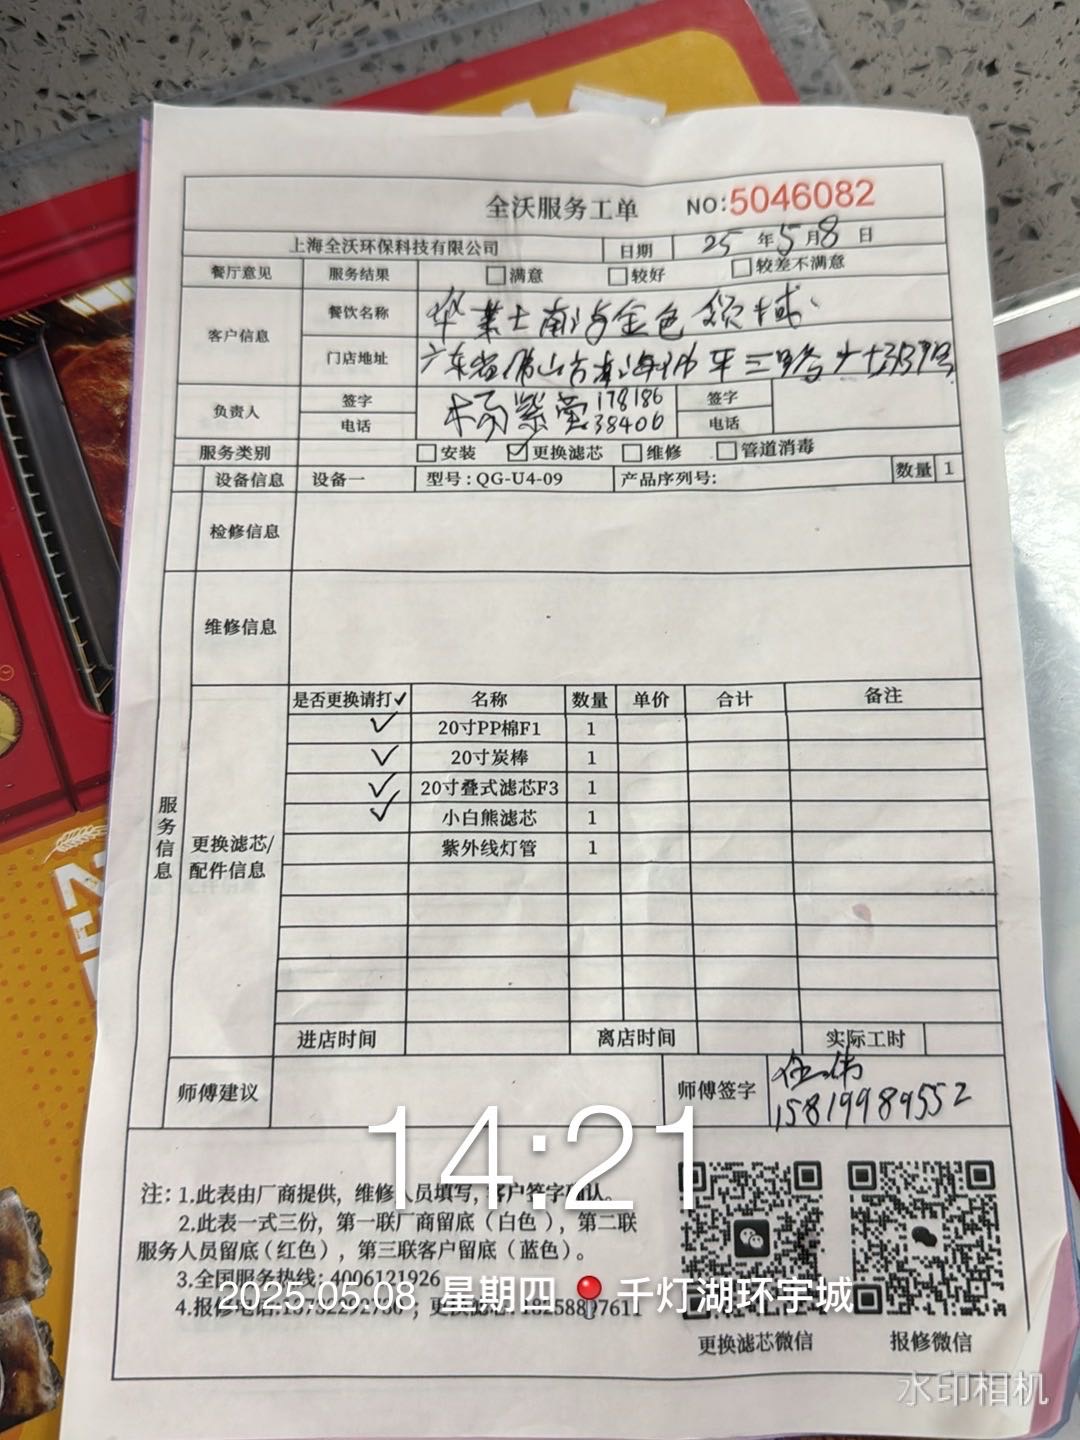 全沃服务工单 NO:5046082
上海全沃环保科技有限公司 日期 25 年 5 月 8 日
餐厅意见 服务结果 满意 较好 较差不满意
客户信息 餐饮名称 华莱士南海金色领域
门店地址 广东省佛山市南海
负责人 签字 178186 签字
电话 38406 电话
服务类别 安装 更换滤芯 维修 管道消毒
设备信息 设备一 型号：QG-U4-09 产品序列号： 数量 1
检修信息
维修信息
服务信息
更换滤芯/
配件信息
是否更换请打✓ 名称 数量 单价 合计 备注
✓ 20寸PP棉F1 1
✓ 20寸炭棒 1
✓ 20寸叠式滤芯F3 1
✓ 小白熊滤芯 1
紫外线灯管 1
进店时间 离店时间 实际工时
师傅建议 师傅签字 伍伟
15819989552
14:21
注：1.此表由厂商提供，维修人员填写，客户签字确认。
2.此表一式三份，第一联厂商留底（白色），第二联
服务人员留底（红色），第三联客户留底（蓝色）。
3.全国服务热线：4006121926
2025.05.08 星期四 千灯湖环宇城
4.报修电话: 更换滤芯:
更换滤芯微信 报修微信
水印相机